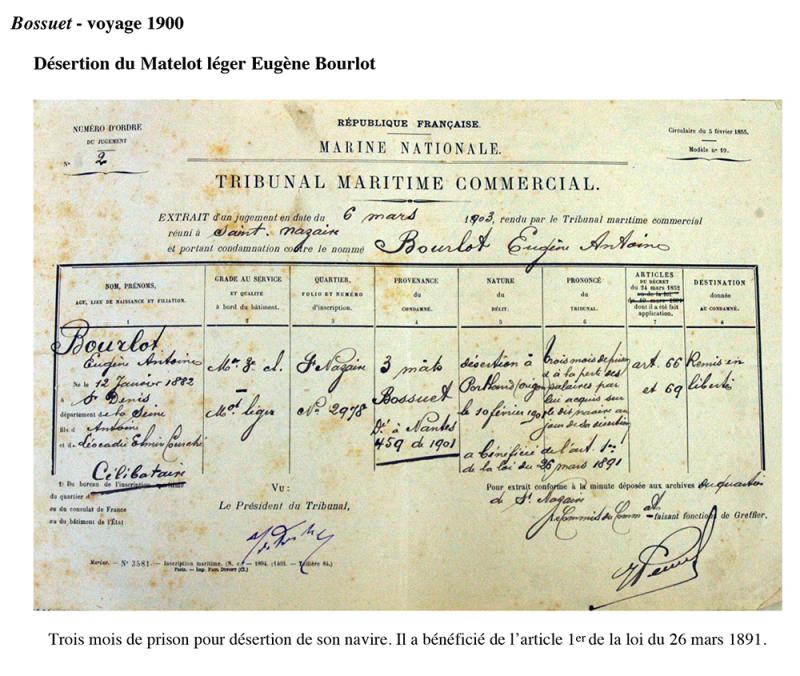 Bossuet - voyage 1900
Désertion du Matelot léger Eugène Bourlot
NUMÉRO D'ORDRE
DU JUGEMENT
N° 2
RÉPUBLIQUE FRANÇAISE.
MARINE NATIONALE.
Circulaire du 5 février 1855.
Modèle n° 19.
TRIBUNAL MARITIME COMMERCIAL.
EXTRAIT d'un jugement en date du 6 mars 1903, rendu par le Tribunal maritime commercial
réuni à Saint. Nazaire
et portant condamnation contre le nommé Bourlot Eugène Antoine
NOM, PRÉNOMS,
AGE, LIEU DE NAISSANCE ET FILIATION.
1
Bourlot
Eugène Antoine
Né le 12 Janvier 1882
à St Denis
département de la Seine
fils d' Antoine
et de Léocadie
Célibataire
GRADE AU SERVICE
ET QUALITÉ
à bord du bâtiment.
2
Mot 3e cl.
—
Mot léger
QUARTIER,
FOLIO ET NUMÉRO
d'inscription.
3
St Nazaire
N° 2978
PROVENANCE
du
CONDAMNÉ.
4
3 mâts
Bossuet
Dt à Nantes
459 de 1901
NATURE
du
DÉLIT.
5
désertion à
Portland
le 10 février 1901
PRONONCÉ
du
TRIBUNAL.
6
trois mois de prison
et à la perte des
salaires par
lui acquis sur
le dit navire au
jour de sa désertion
a bénéficié de l'art. 1er
de la loi du 26 mars 1891
ARTICLES
DU DÉCRET
du 24 mars 1852
dont il a été fait
application.
7
art. 66
et 69
DESTINATION
donnée
AU CONDAMNÉ.
8
Remis en
liberté
1) Du bureau de l'inscription maritime
du quartier d
ou du consulat de France
ou du bâtiment de l'État
VU :
Le Président du Tribunal,
Pour extrait conforme à la minute déposée aux archives du quartier
de St Nazaire
Le Commis du Commat faisant fonctions de Greffier.
Marine. — N° 3581. — Inscription maritime.
Paris. — Imp. Paul Dupont (Cl.)
Trois mois de prison pour désertion de son navire. Il a bénéficié de l'article 1er de la loi du 26 mars 1891.